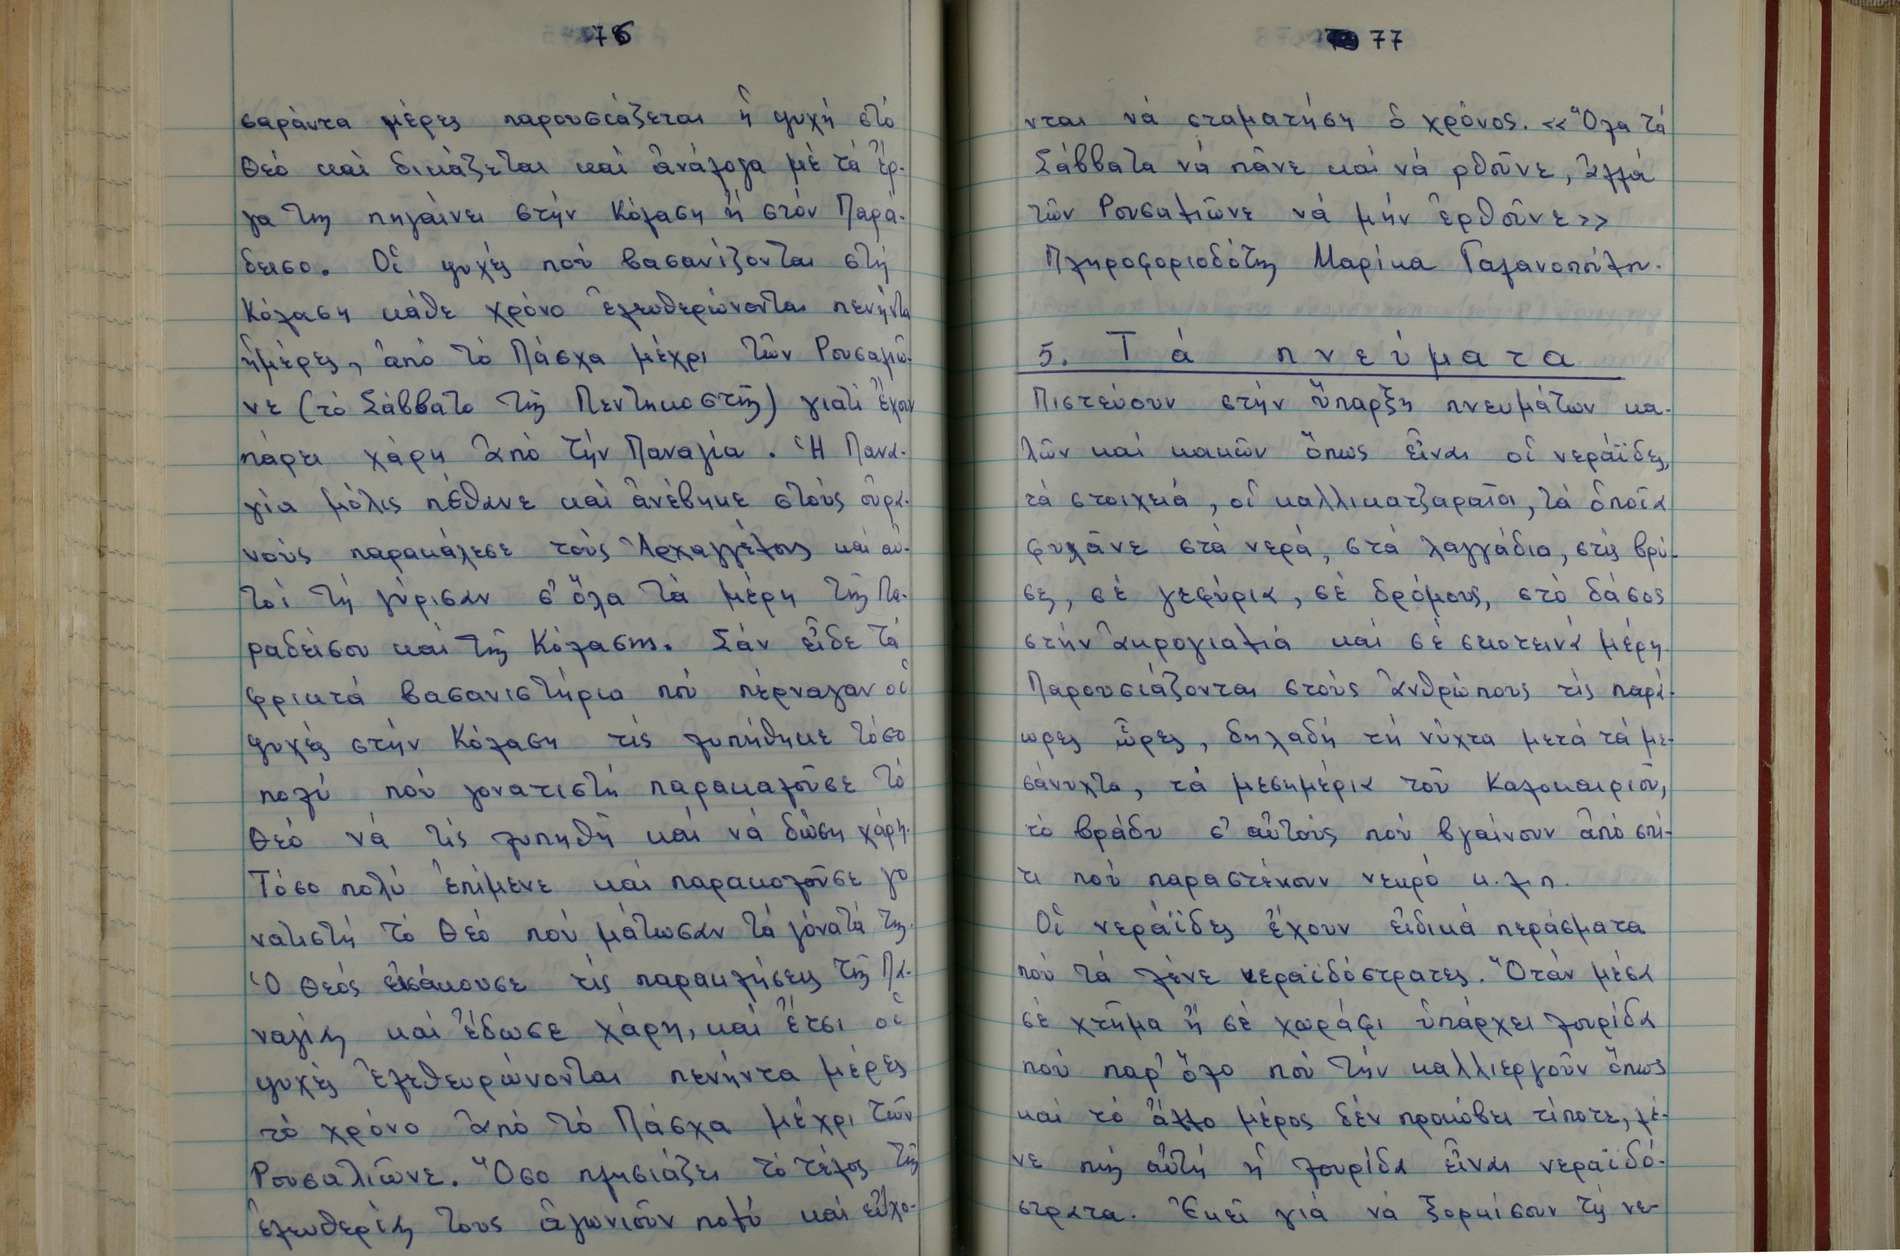 76
σαράντα μέρες παρουσιάζεται ἡ ψυχή στό
Θεό καί δικάζεται καί ἀνάλογα μέ τά ἔρ-
γα της πηγαίνει στήν Κόλαση ἤ στόν Παρά-
δεισο. Οἱ ψυχές πού βασανίζονται στή
Κόλαση κάθε χρόνο ἐλευθερώνονται πενήντα
ἡμέρες, ἀπό τό Πάσχα μέχρι τῶν Ρουσαλιῶ-
νε (τό Σάββατο τῆς Πεντηκοστῆς) γιατί ἔχουν
πάρει χάρη ἀπό τήν Παναγία. Ἡ Πανα-
γία μόλις πέθανε καί ἀνέβηκε στούς οὐρα-
νούς παρακάλεσε τούς Ἀρχαγγέλους καί αὐ-
τοί τή γύρισαν σ' ὅλα τά μέρη τῆς Πα-
ραδείσου καί τῆς Κόλασης. Σάν εἶδε τά
φρικτά βασανιστήρια πού πέρναγαν οἱ
ψυχές στήν Κόλαση τίς λυπήθηκε τόσο
πολύ πού γονατιστή παρακαλοῦσε τό
Θεό νά τίς λυπηθῆ καί νά δώση χάρη.
Τόσο πολύ ἐπέμενε καί παρακαλοῦσε γο
νατιστή τό Θεό πού μάτωσαν τά γόνατά της.
Ὁ Θεός εἰσάκουσε τίς παρακλήσεις τῆς Πα-
ναγίας καί ἔδωσε χάρη, καί ἔτσι οἱ
ψυχές ἐλεθευρώνονται πενήντα μέρες
τό χρόνο ἀπό τό Πάσχα μέχρι τῶν
Ρουσαλιῶνε. Ὅσο πλησιάζει τό τέλος τῆς
ἐλευθερίας τους ἀγωνιοῦν πολύ καί εὔχο-
77
νται νά σταματήση ὁ χρόνος. «Ὅλα τά
Σάββατα νά πᾶνε καί νά ρθοῦνε, ἀλλά
τῶν Ρουσαλιῶνε νά μήν ἐρθοῦνε»
Πληροφοριοδότης Μαρίκα Γαλανοπούλου.
5. Τά πνεύματα
Πιστεύουν στήν ὕπαρξη πνευμάτων κα-
λῶν καί κακῶν ὅπως εἶναι οἱ νεράϊδες,
τά στοιχειά, οἱ καλλικατζαραῖοι, τά ὁποῖα
φυλᾶνε στά νερά, στά λαγγάδια, στίς βρύ-
σες, σέ γεφύρια, σέ δρόμους, στό δάσος
στήν ἀκρογιαλιά καί σέ σκοτεινά μέρη.
Παρουσιάζονται στούς ἀνθρώπους τίς παρά-
ωρες ὧρες, δηλαδή τή νύχτα μετά τά με-
σάνυχτα, τά μεσημέρια τοῦ Καλοκαιριοῦ,
τό βράδυ σ' αὐτούς πού βγαίνουν ἀπό σπί-
τι πού παραστέκουν νεκρό κ.λ.π.
Οἱ νεράϊδες ἔχουν εἰδικά περάσματα
πού τά λένε νεραϊδόστρατες. Ὅταν μέσα
σέ κτῆμα ἤ σέ χωράφι ὑπάρχει λουρίδα
πού παρ' ὅλο πού τήν καλλιεργοῦν ὅπως
καί τό ἄλλο μέρος δέν προκόβει τίποτε, λέ-
νε πώς αὐτή ἡ λουρίδα εἶναι νεραϊδό-
στρατα. Ἐκεῖ γιά νά ξορκίσουν τή νε-